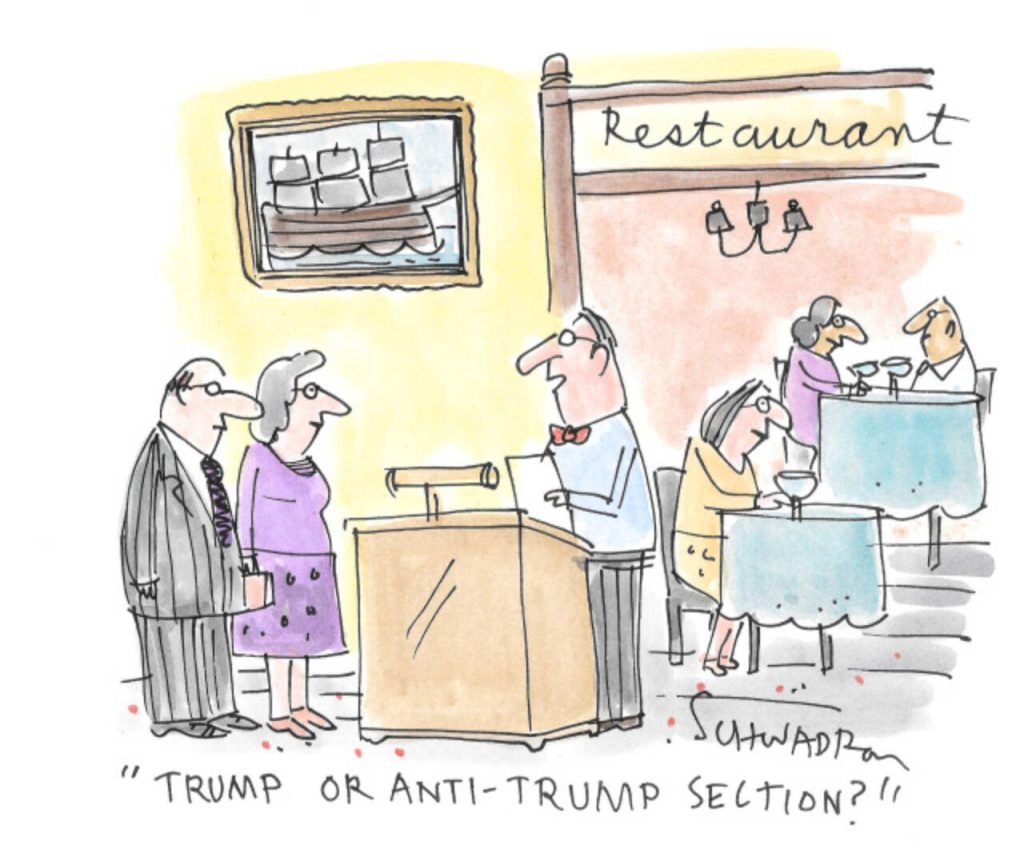 Restaurant
SCHWADRon
"TRUMP OR ANTI-TRUMP SECTION?"